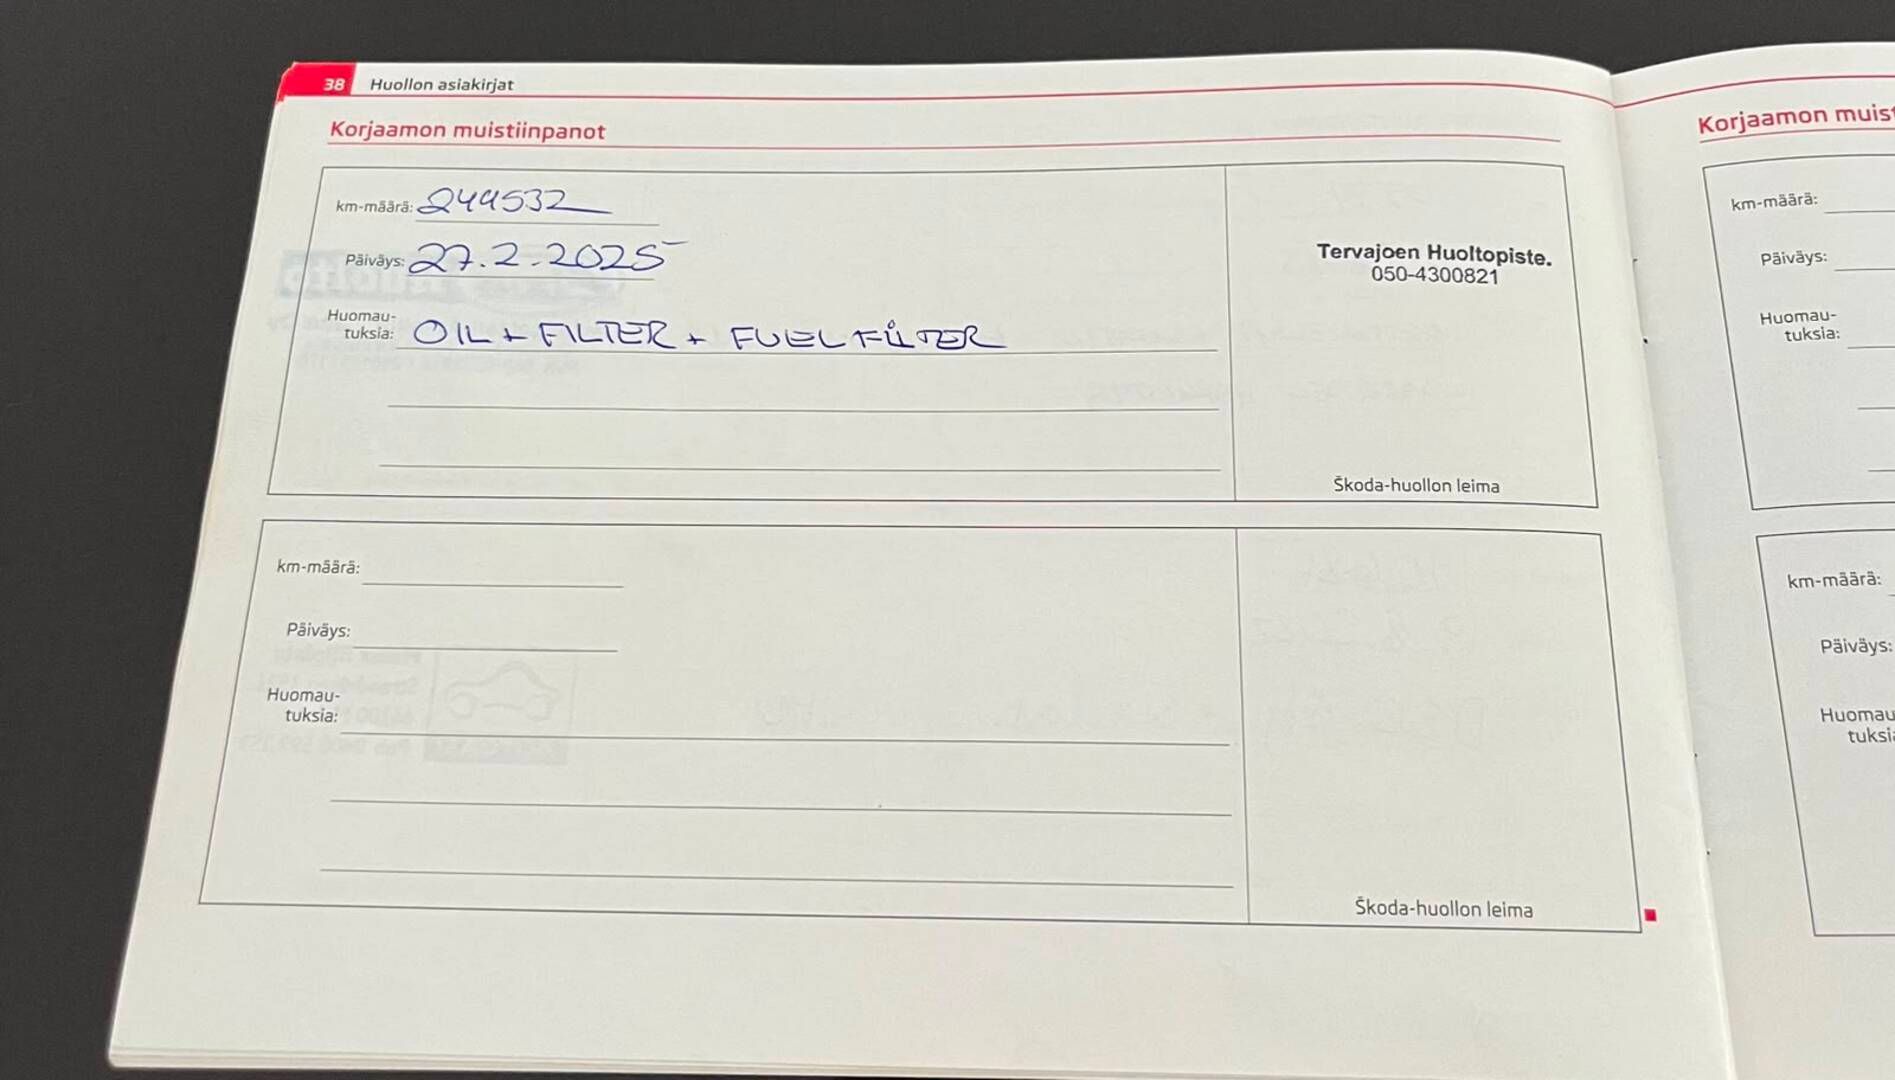 38 Huollon asiakirjat
Korjaamon muistiinpanot
km-määrä: 249532
Päiväys: 27.2.2025
Huomau-
tuksia: OIL + FILTER + FUEL FILTER
Tervajoen Huoltopiste.
050-4300821
Škoda-huollon leima
km-määrä:
Päiväys:
Huomau-
tuksia:
Škoda-huollon leima
Korjaamon muist
km-määrä:
Päiväys:
Huomau-
tuksia:
km-määrä:
Päiväys:
Huomau
tuksia